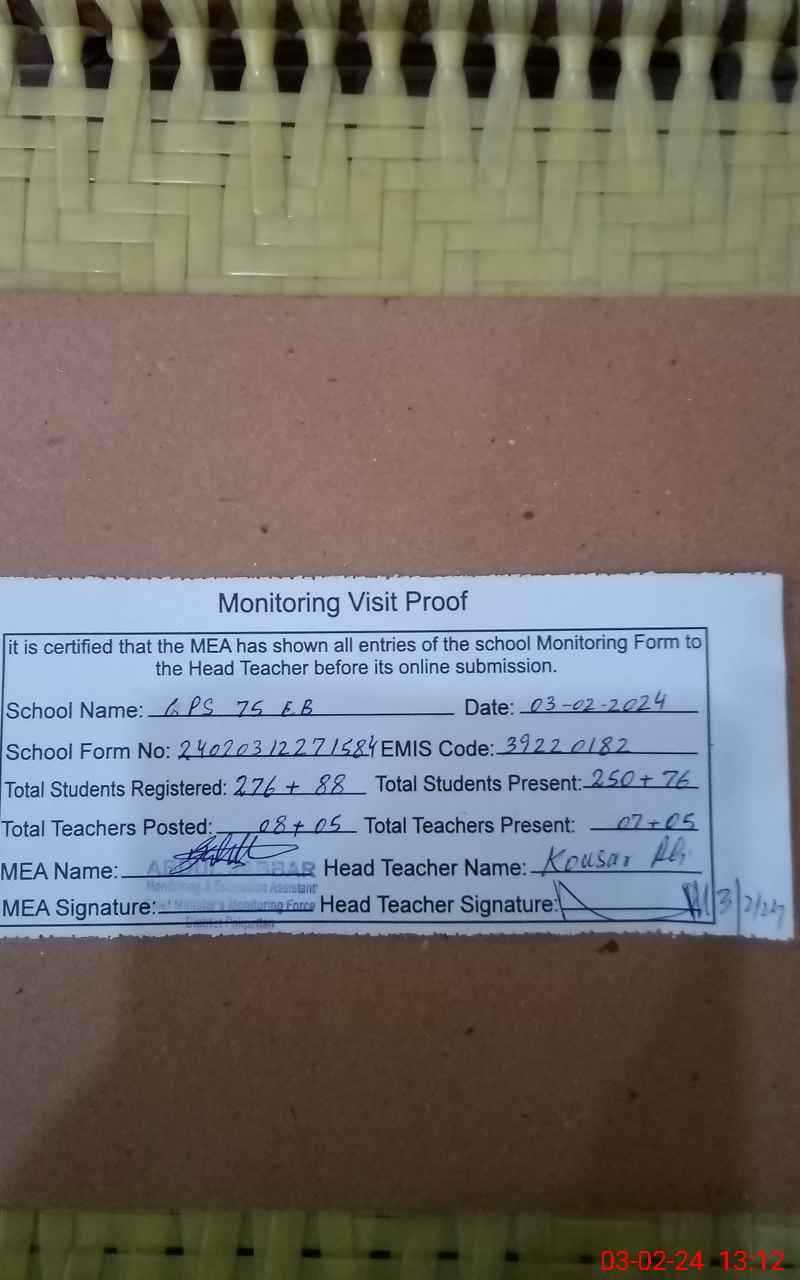 Monitoring Visit Proof
it is certified that the MEA has shown all entries of the school Monitoring Form to
the Head Teacher before its online submission.
School Name: GPS 75 EB Date: 03-02-2024
School Form No: 24020312271584 EMIS Code: 39220182
Total Students Registered: 276 + 88 Total Students Present: 250 + 76
Total Teachers Posted: 08 + 05 Total Teachers Present: 07 + 05
MEA Name: Head Teacher Name: Kousar
Monitoring & Evaluation Assistant
MEA Signature: Chief Minister's Monitoring Force Head Teacher Signature: 3/2/24
District Pakpattan
03-02-24 13:12